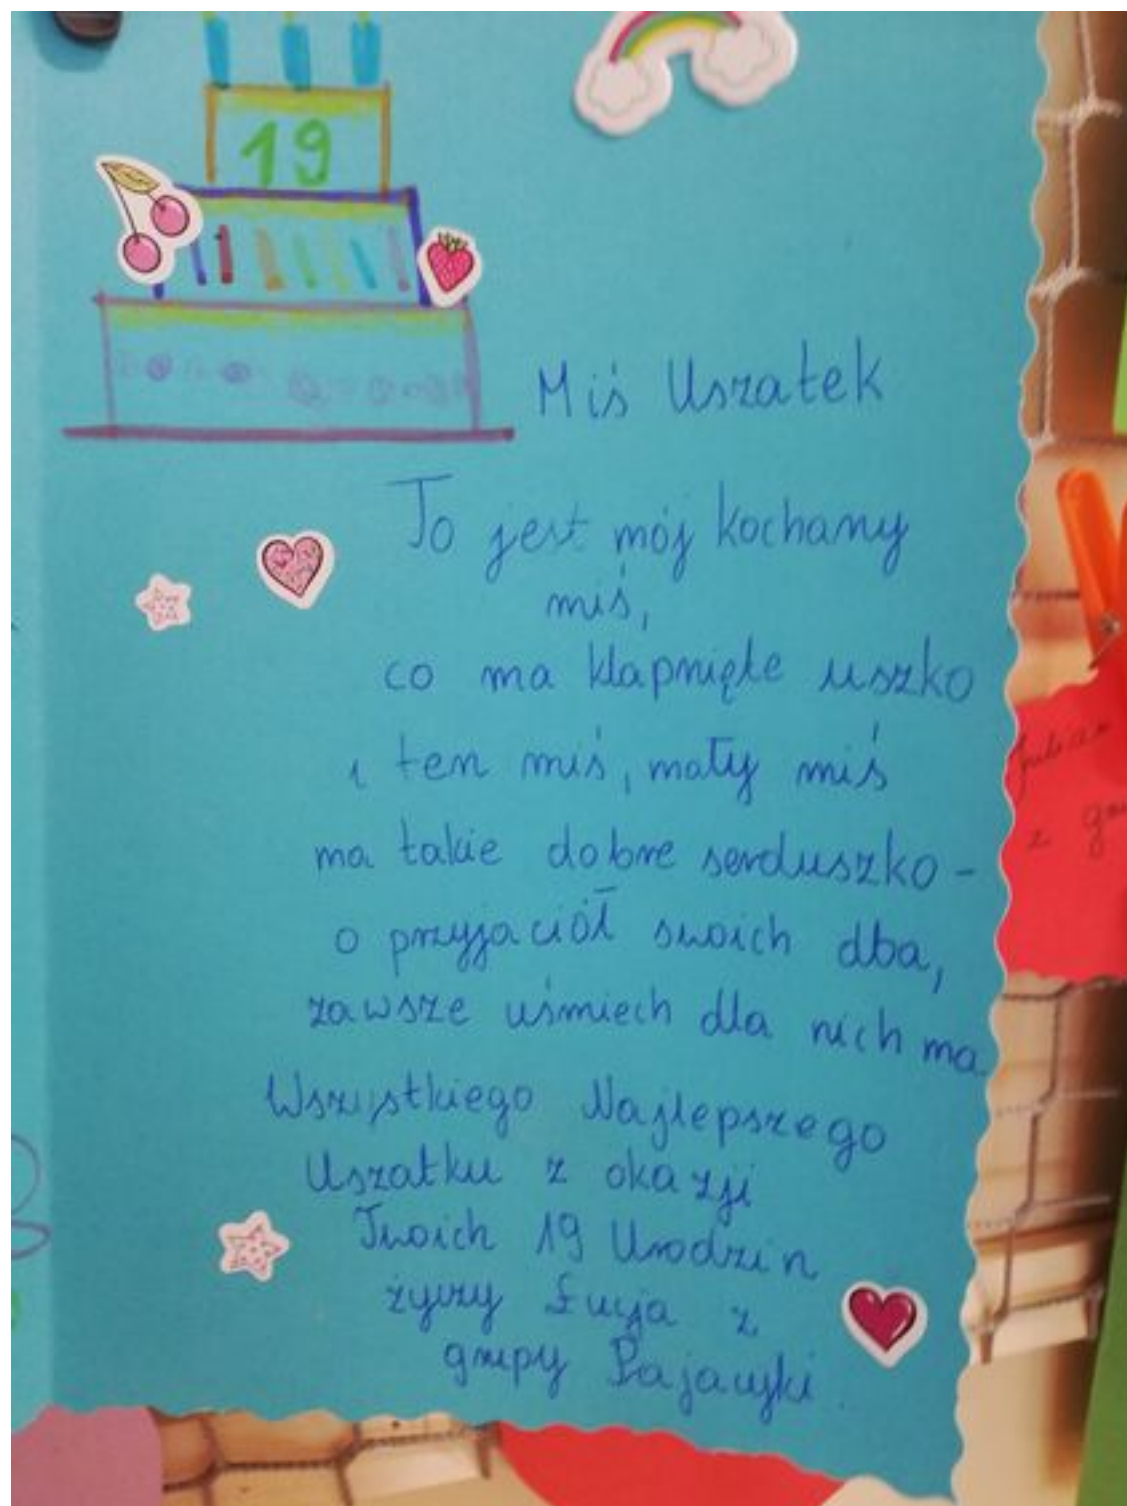 19
Miś Uszatek
To jest mój kochany
miś,
co ma klapnięte uszko
i ten miś, mały miś
ma takie dobre serduszko -
o przyjaciół swoich dba,
zawsze uśmiech dla nich ma
Wszystkiego Najlepszego
Uszatku z okazji
Twoich 19 Urodzin
życzy Łucja z
grupy Pajacyki.
z